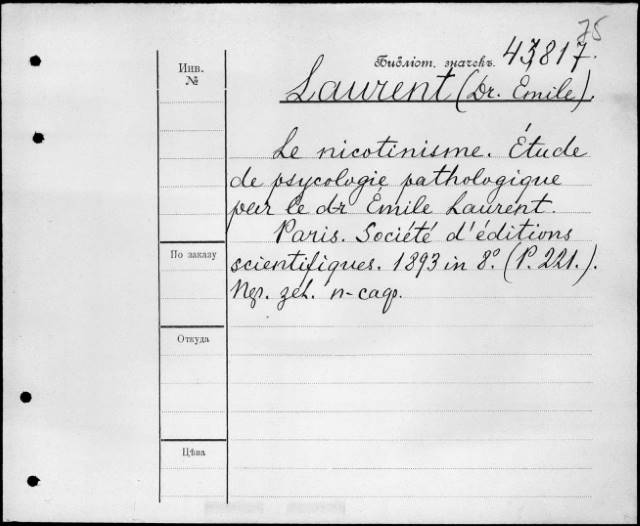 75
Библіот. значекъ 43817.
Инв.
№
Laurent (Dr. Emile).
Le nicotinisme. Étude
de psycologie pathologique
par le dr Émile Laurent.
Paris. Société d'éditions
По заказу
scientifiques. 1893 in 8º. (P. 221.).
Откуда
Цѣна